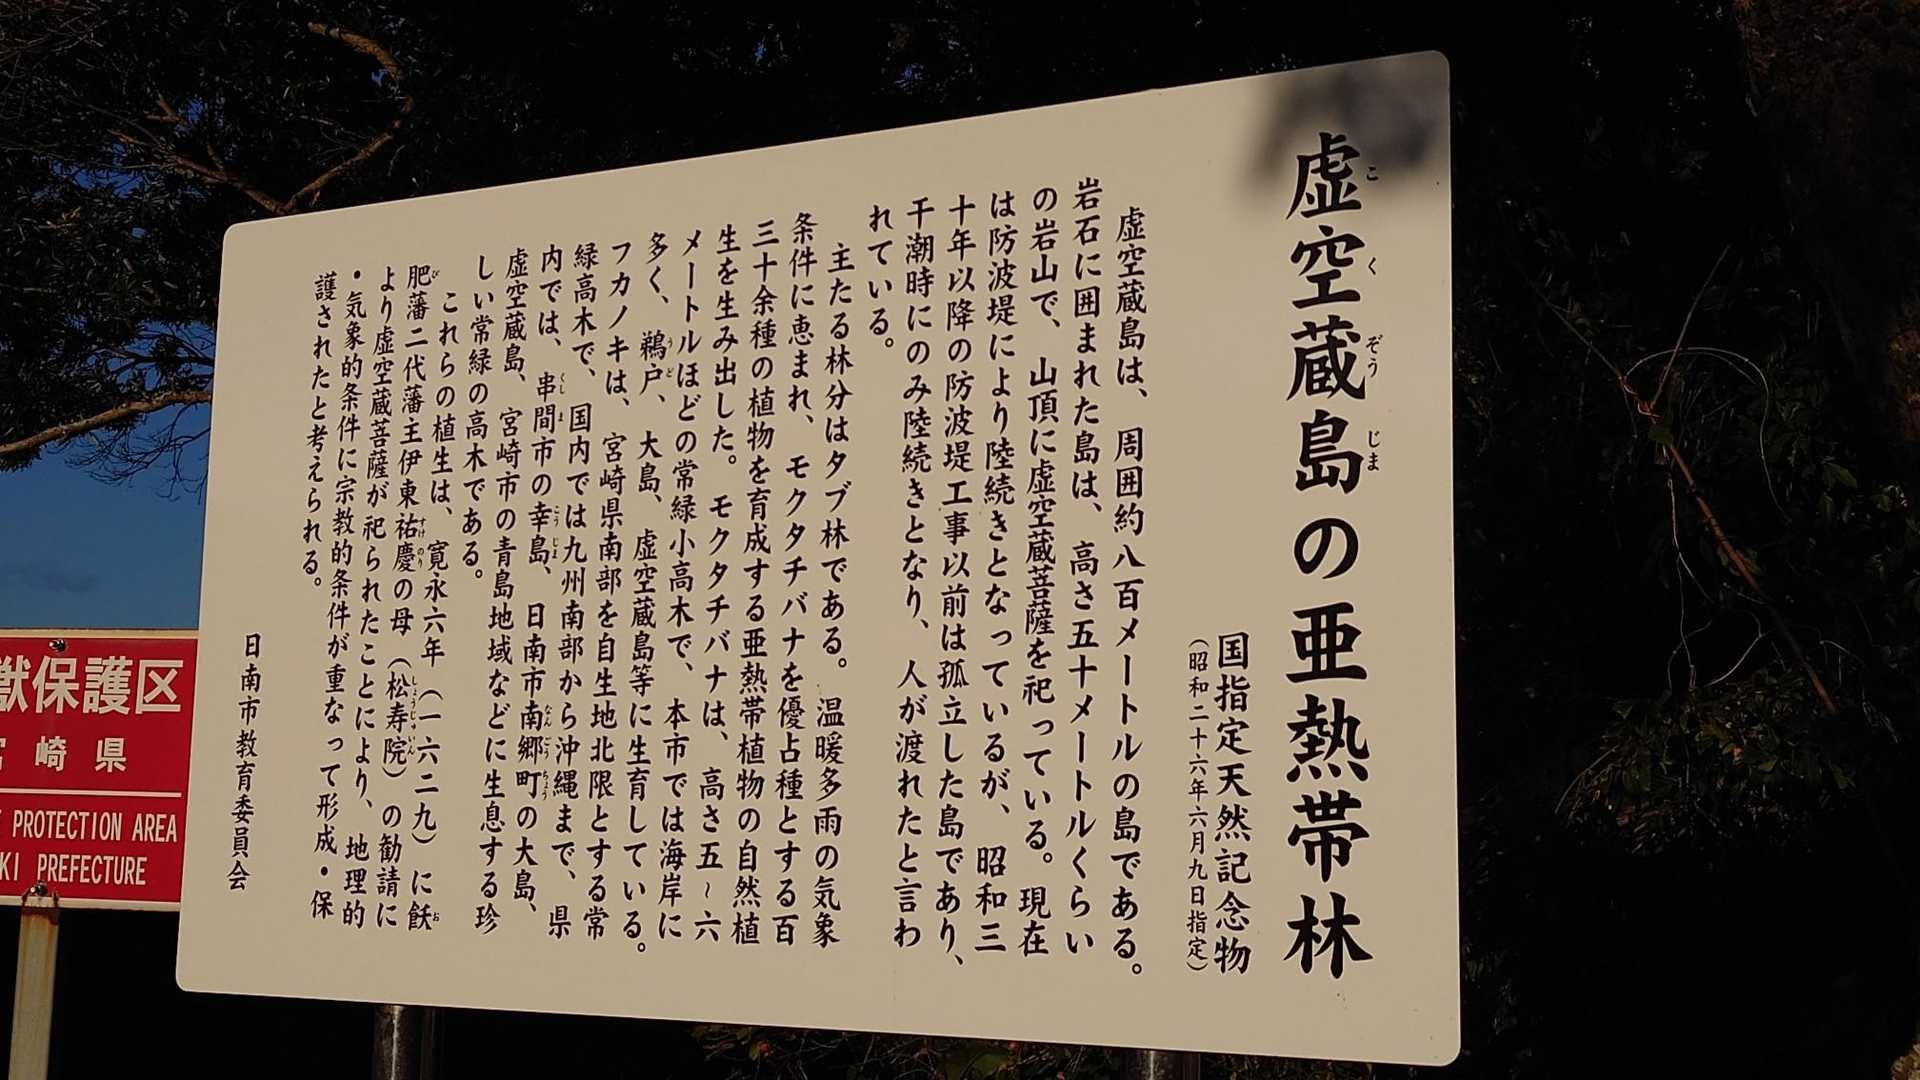 虚空蔵島の亜熱帯林
こくぞうじま
国指定天然記念物
（昭和二十六年六月九日指定）
虚空蔵島は、周囲約八百メートルの島である。
岩石に囲まれた島は、高さ五十メートルくらい
の岩山で、山頂に虚空蔵菩薩を祀っている。現在
は防波堤により陸続きとなっているが、昭和三
十年以降の防波堤工事以前は孤立した島であり、
干潮時にのみ陸続きとなり、人が渡れたと言わ
れている。
主たる林分はタブ林である。温暖多雨の気象
条件に恵まれ、モクタチバナを優占種とする百
三十余種の植物を育成する亜熱帯植物の自然植
生を生み出した。モクタチバナは、高さ五～六
メートルほどの常緑小高木で、本市では海岸に
多く、鵜戸、大島、虚空蔵島等に生育している。
うど
フカノキは、宮崎県南部を自生地北限とする常
緑高木で、国内では九州南部から沖縄まで、県
内では、串間市の幸島、日南市南郷町の大島、
くしま こうじま なんごうちょう
虚空蔵島、宮崎市の青島地域などに生息する珍
しい常緑の高木である。
これらの植生は、寛永六年（一六二九）に飫
お
肥藩二代藩主伊東祐慶の母（松寿院）の勧請に
び すけのり しょうじゅいん
より虚空蔵菩薩が祀られたことにより、地理的
・気象的条件に宗教的条件が重なって形成・保
護されたと考えられる。
日南市教育委員会
獣保護区
宮崎県
PROTECTION AREA
KI PREFECTURE